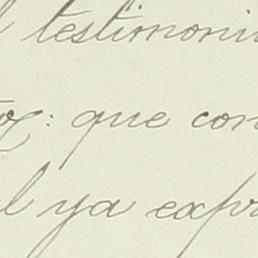 l testimoni
os: que con
l ya expr